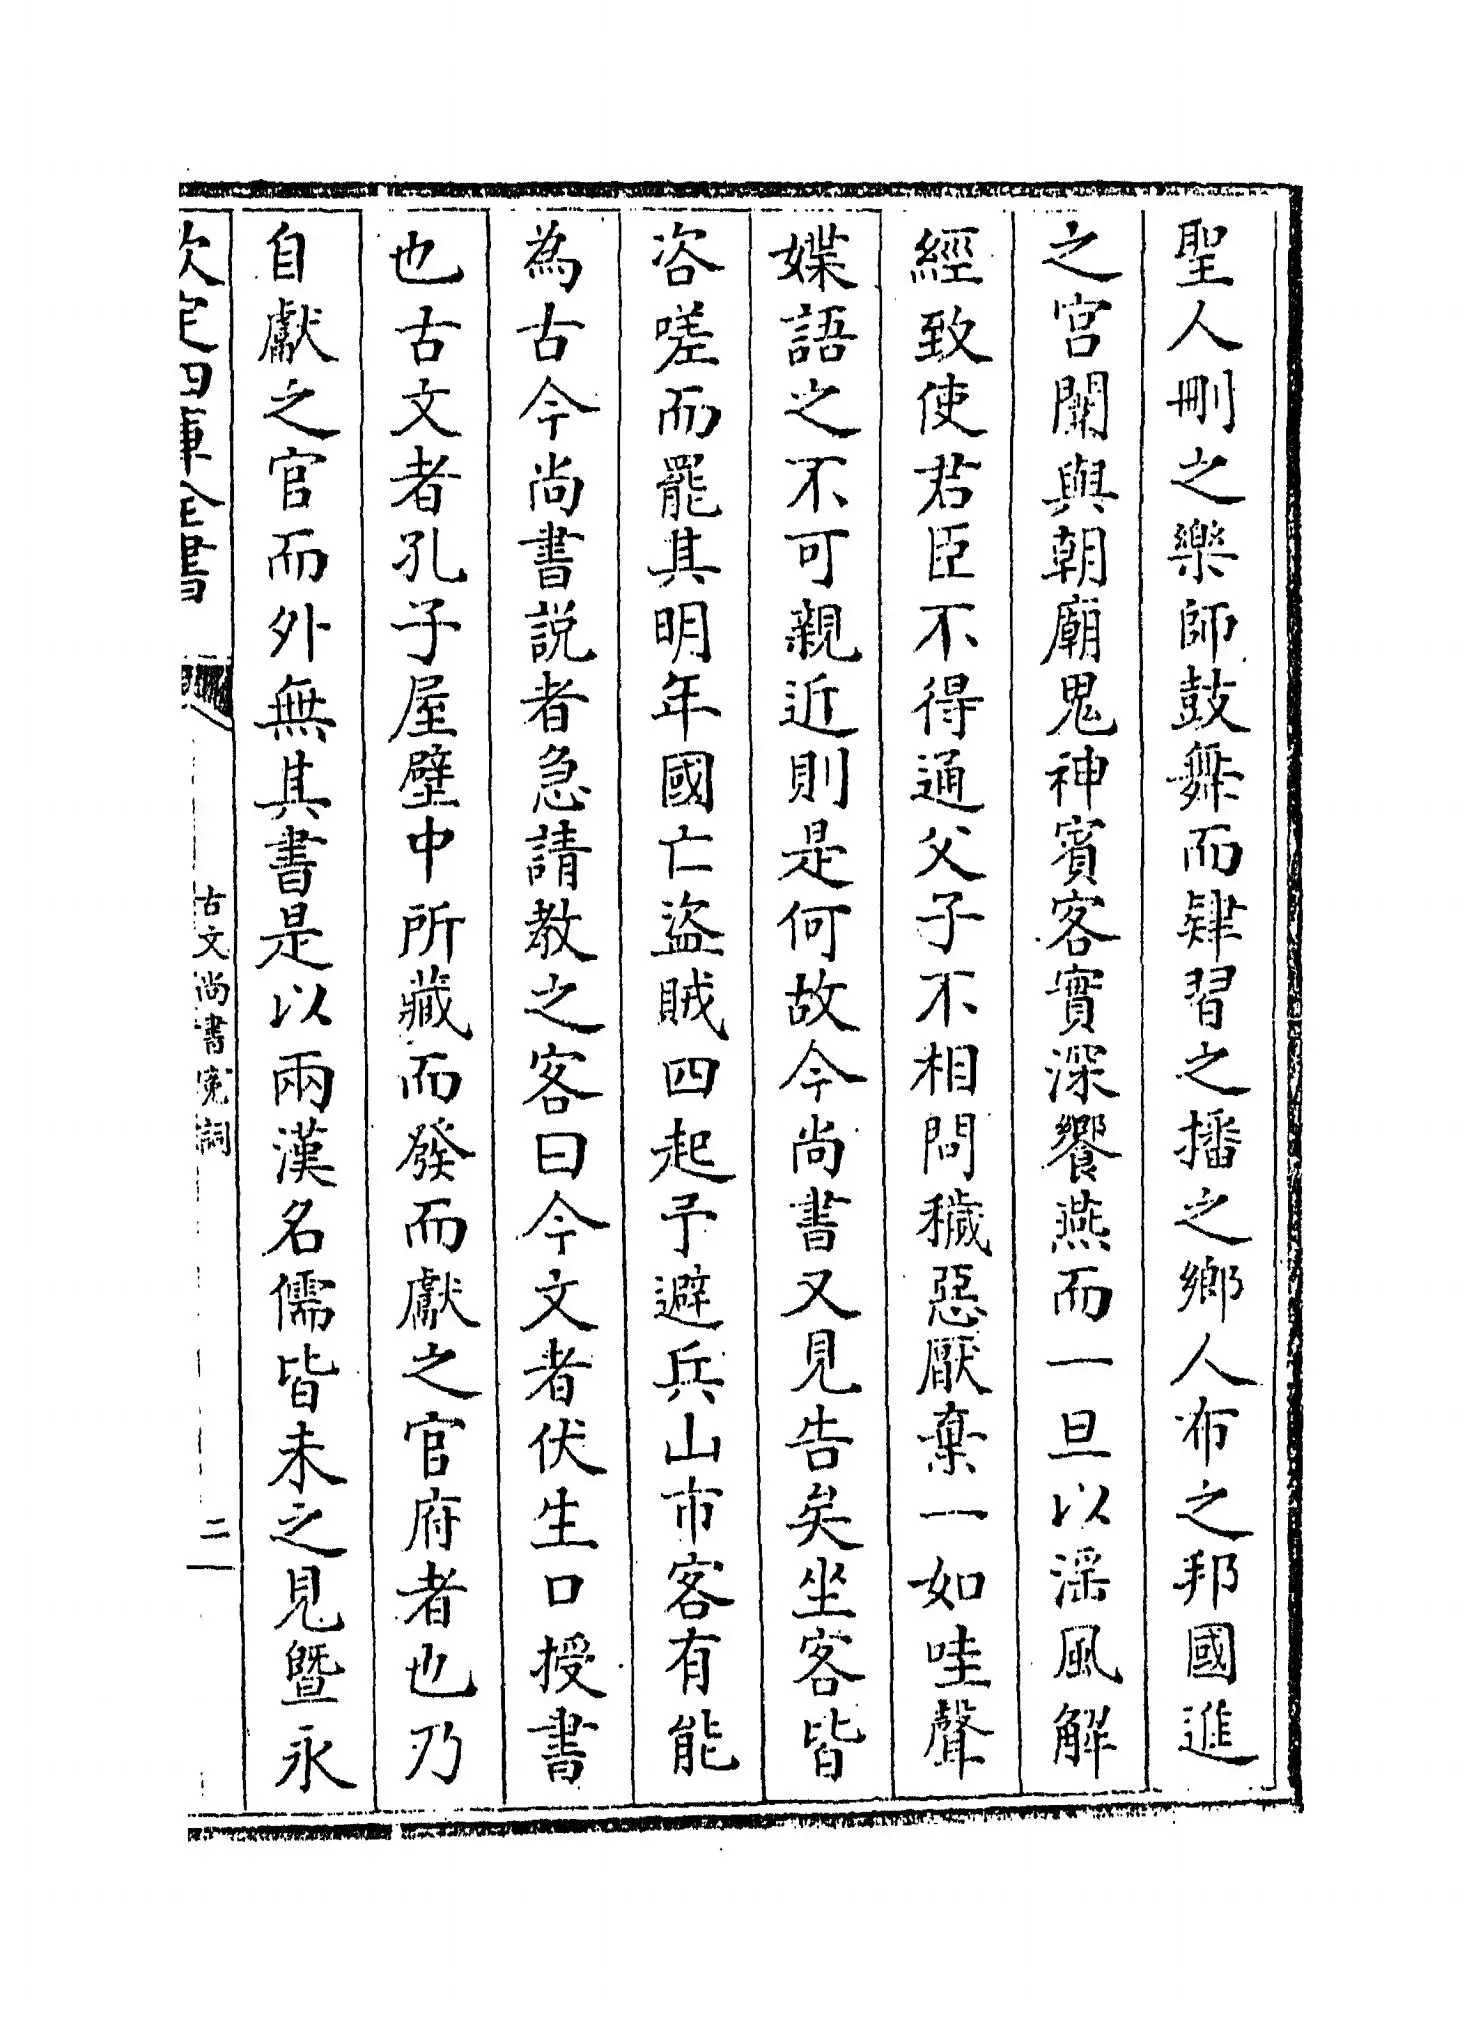 聖人刪之樂師鼓舞而肄習之播之鄉人布之邦國進
之宫闈與朝廟鬼神賓客實深饗燕而一旦以淫風解
經致使君臣不得通父子不相問穢惡厭棄一如哇聲
媟語之不可親近則是何故今尚書又見告矣坐客皆
咨嗟而罷其明年國亡盜賊四起予避兵山市客有能
為古今尚書説者急請教之客曰今文者伏生口授書
也古文者孔子屋壁中所藏而發而獻之官府者也乃
自獻之官而外無其書是以兩漢名儒皆未之見暨永
欽定四庫全書
古文尚書寃詞
二